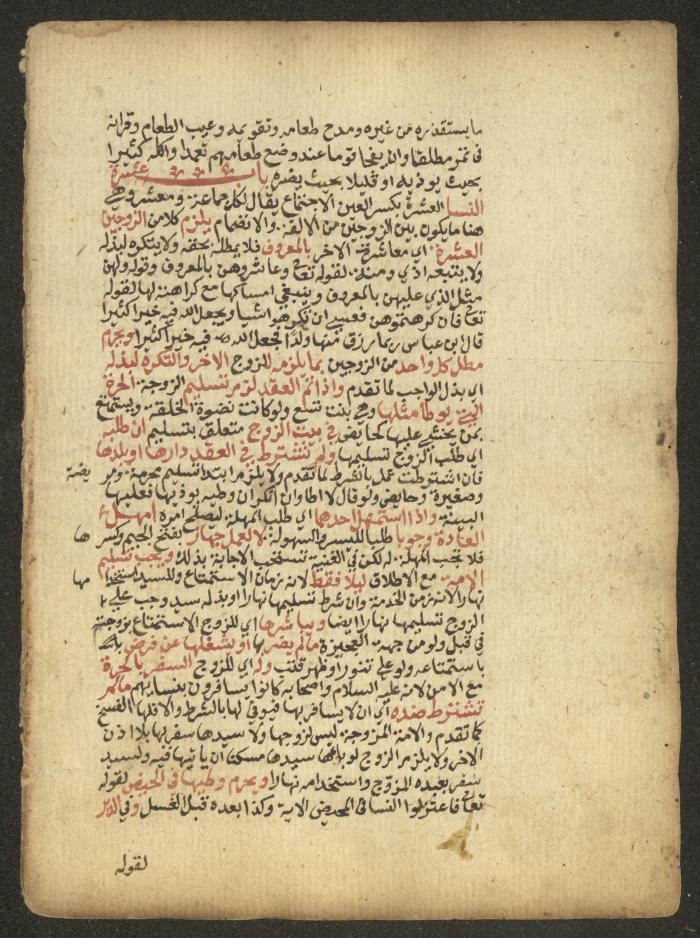 ما يستقذره من غيره ومدح طعامه وتقويمه وعيب الطعام وقرانه
في تمر مطلقا وان يفجا قوما عند وضع طعامهم تعمدا واكله كثيرا
بحيث يوذيه او قليلا بحيث يضره باب عشرة
النسا العشرة بكسر العين الاجتماع يقال لكل جماعة ومعشر وهي
هنا ما يكون بين الزوجين من الالفة والانضمام يلزم كلا من الزوجين
العشرة اي معاشرة الاخر بالمعروف فلا يمطله بحقه ولا يتكره لبذله
ولا يتبعه اذي ومنة لقوله تعالى وعاشروهن بالمعروف وقوله ولهن
مثل الذي عليهن بالمعروف وينبغي امساكها مع كراهته لها لقوله
تعالى فان كرهتموهن فعسى ان تكرهوا شيا ويجعل الله فيه خيرا كثيرا
قال ابن عباس ربما رزق منها ولدا فجعل الله فيه خيرا كثيرا ويحرم
مطل كل واحد من الزوجين بما يلزمه للزوج الاخر والتكره لبذله
اي بذل الواجب لما تقدم واذا تم العقد لزم تسليم الزوجة الحرة
التي يوطا مثلها وهي بنت تسع ولو كانت نضوة الخلقة ويستمتع
بمن يخشى عليها كحايض في بيت الزوج متعلق بتسليم ان طلبه
اي طلب الزوج تسليمها ولم تشترط في العقد دارها او بلدها
فان اشترطت عمل بالشرط لما تقدم ولا يلزم ابتدا تسليم محرمة ومريضة
وصغيرة وحايض ولو قال لا اطا وان انكر ان وطيه يوذيها فعليها
البينة واذا استمهل احدهما اي طلب المهلة ليصلح امره امهل
العادة وجوبا طلبا لليسر والسهولة لا لعمل جهاز بفتح الجيم وكسرها
فلا تجب المهلة له لكن في الغنية تستحب الاجابة بذلك ويجب تسليم
الامة مع الاطلاق ليلا فقط لانه زمان الاستمتاع وللسيد استخدامها
نهارا لانه زمن الخدمة وان شرط تسليمها نهارا او بذله سيد وجب على
الزوج تسليمها نهارا ايضا ويباشرها اي للزوج الاستمتاع بزوجته
في قبل ولو من جهة العجيزة ما لم يضر بها او يشغلها عن فرض
باستمتاعه ولو على تنور او ظهر قتب وله اي للزوج السفر بالحرة
مع الامن لانه عليه السلام واصحابه كانوا يسافرون بنسايهم ما لم
تشترط ضده اي ان لا يسافر بها فيوفي لها بالشرط والا فلها الفسخ
كما تقدم والامة المزوجة ليس لزوجها ولا سيدها سفر بها بلا اذن
الاخر ولا يلزم الزوج لو بواها سيدها مسكنا ان ياتيها فيه ولسيد
سفر بعبده المزوج واستخدامه نهارا ويحرم وطيها في الحيض لقوله
تعالى فاعتزلوا النسا في المحيض الاية وكذا بعده قبل الغسل وفي الدبر
لقوله